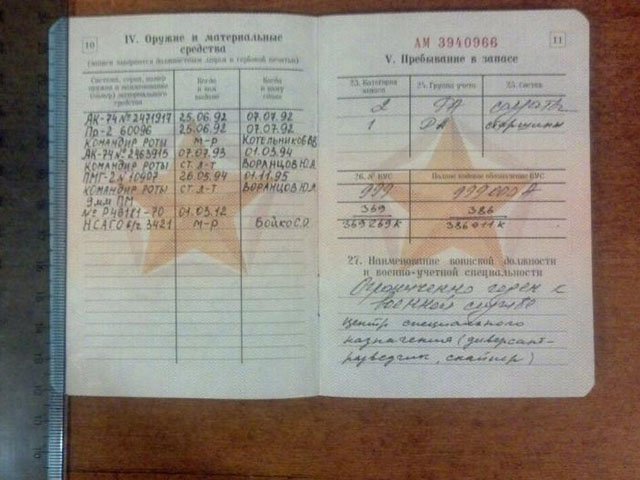 10
IV. Оружие и материальные
средства
(записи заверяются должностным лицом и гербовой печатью)
Система, серия, номер
оружия и наименование
(номер) материального
средства
Когда
и кем
выдано
Когда
и кому
сдано
АК-74 № 2471917 25.06.92 07.07.92
Пр-2 60096 25.06.92 07.07.92
КОМАНДИР РОТЫ М-Р КОТЕЛЬНИКОВ В.В.
АК-74 № 2463915 07.07.93 01.03.94
КОМАНДИР РОТЫ СТ.Л-Т ВОРАНЦОВ Ю.Л
ПМГ-2 № 10407 26.05.94 01.11.95
КОМАНДИР РОТЫ СТ Л-Т ВОРАНЦОВ Ю.Л
9мм ПМ
№ 01.03.12
НСАГО в/ч 3421 М-Р БОЙКО С.О
АМ 3940966
11
V. Пребывание в запасе
23. Категория
запаса
24. Группа учета
25. Состав
2 солдаты
1 старшины
26. № ВУС
Полное кодовое обозначение ВУС
999 999000 А
369 386
369269 К 386911 К
27. Наименование воинской должности
и военно-учетной специальности
Ограниченно годен к
военной службе
центр специального
назначения (диверсант-
разведчик, снайпер)